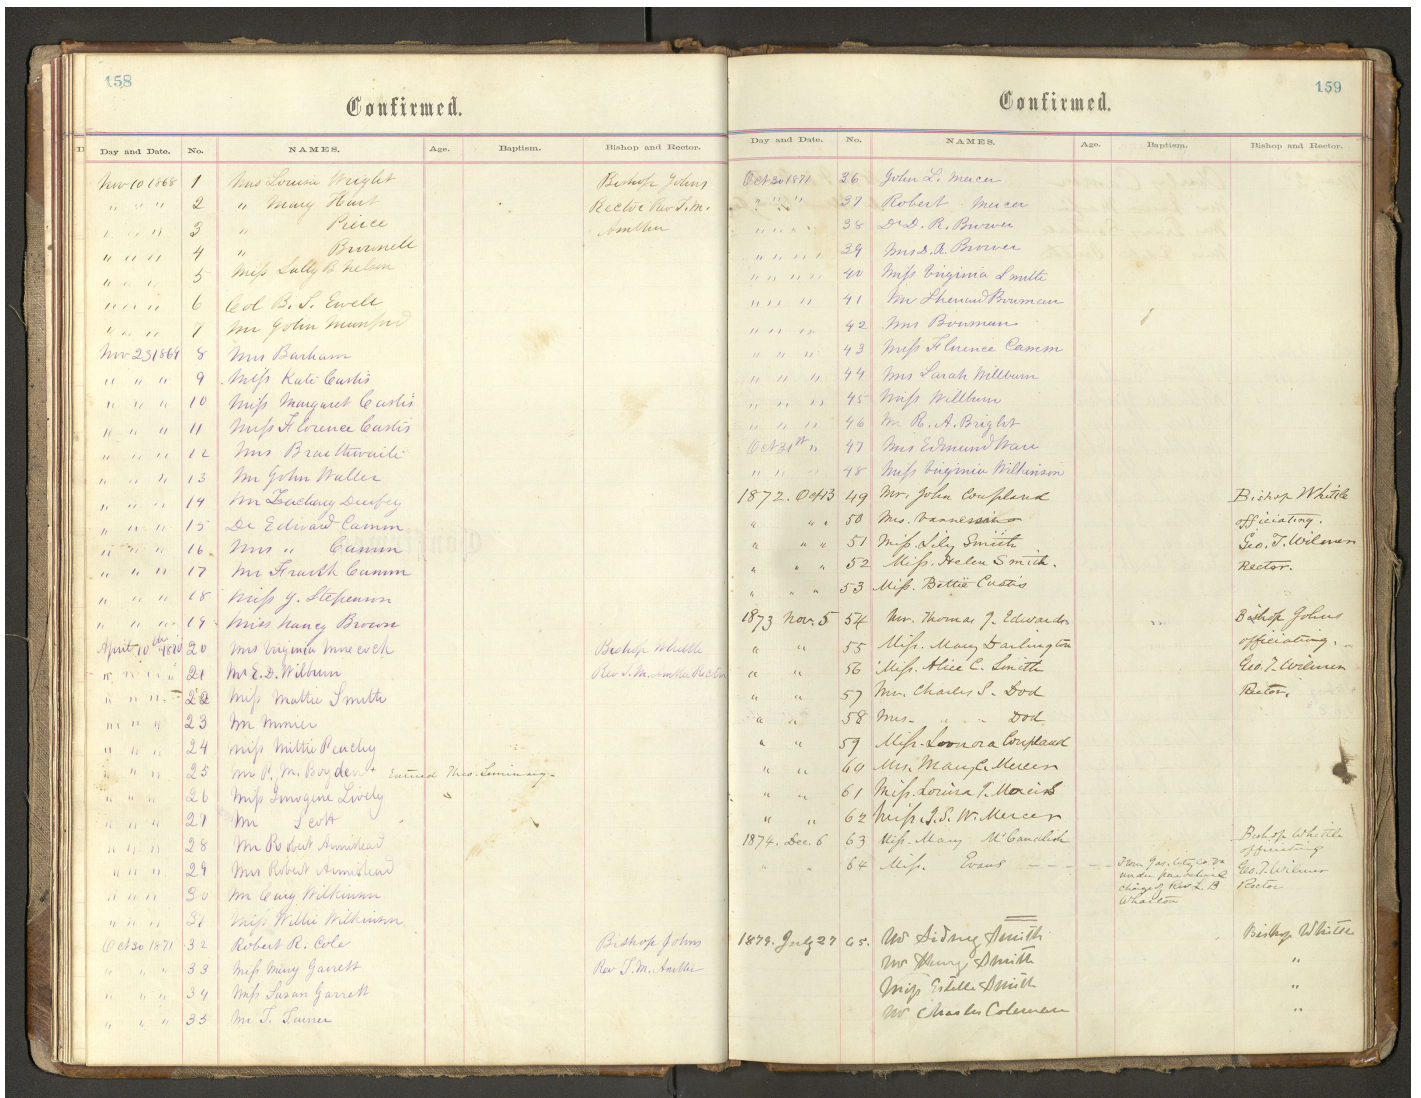 158
Confirmed.
Day and Date. No. NAMES. Age. Baptism. Bishop and Rector.
Nov 10 1868 1 Mrs Louisa Wright Bishop Johns
" " " 2 " Mary Hurt Rector Rev T. M.
" " " 3 " Peirce Ambler
" " " 4 " Brownell
" " " 5 Miss Sally B Nelson
" " " 6 Col B. S. Ewell
" " " 7 Mr John Munford
Nov 23 1869 8 Mrs Barham
" " " 9 Miss Kate Custis
" " " 10 Miss Margaret Custis
" " " 11 Miss Florence Custis
" " " 12 Mrs Braithwaite
" " " 13 Mr John Waller
" " " 14 Mr Zachary Durfey
" " " 15 Dr Edward Camm
" " " 16 Mrs " Camm
" " " 17 Mr Frank Camm
" " " 18 Miss J. Stepenson
" " " 19 Miss Nancy Brown
April 10th 1870 20 Mrs Virginia Morecock Bishop Whittle
" " " " 21 Mr E. D. Wilburn Rev T. M. Ambler Rector
" " " 22 Miss Mattie Smith
" " " 23 Mr
" " " 24 Miss Mittie Peachy
" " " 25 Mr P. M. Boyden + Entered Theo. Seminary.
" " " 26 Miss Imogene Lively
" " " 27 Mr Scott
" " " 28 Mr Robert Armistead
" " " 29 Mrs Robert Armistead
" " " 30 Mr Cary Wilkinson
" " " 31 Miss Willie Wilkinson
Oct 30 1871 32 Robert R. Cole Bishop Johns
" " " 33 Miss Mary Garrett Rev T. M. Ambler
" " " 34 Miss Susan Garrett
" " " 35 Mr T. Turner
159
Confirmed.
Day and Date. No. NAMES. Age. Baptism. Bishop and Rector.
Oct 30 1871 36 John L. Mercer
" " " 37 Robert Mercer
" " " 38 Dr D. R. Brower
" " " 39 Mrs D. R. Brower
" " " 40 Miss Virginia Smith
" " " 41 Mr Bowman
" " " 42 Mrs Bowman
" " " 43 Miss Florence Camm
" " " 44 Mrs Sarah Willburn
" " " 45 Miss Willburn
" " " 46 Mr R. A. Bright
Oct 31st " 47 Mrs Edmund Ware
" " " 48 Miss Virginia Wilkinson
1872. Oct 13 49 Mr. John Coupland Bishop Whittle
" " " 50 Mrs. officiating.
" " " 51 Miss. Lily Smith Geo. T. Wilmer
" " " 52 Miss. Helen Smith. Rector.
" " " 53 Miss. Bettie Custis
1873 Nov. 5 54 Mr. Thomas J. Edwards Bishop Johns
" " 55 Miss. Mary Darlington officiating.
" " 56 Miss. Alice C. Smith Geo. T. Wilmer
" " 57 Mr. Charles S. Dod Rector.
" " 58 Mrs. " " Dod
" " 59 Miss. Leonora Coupland
" " 60 Mrs. Mary C. Mercer
" " 61 Miss. Louisa T. Mercer
" " 62 Miss. I. S. W. Mercer
1874. Dec. 6 63 Miss. Mary McCandlish Bishop Whittle
officiating
" " 64 Miss. Evans - - - - - From Jas. City Co. Va Geo. T. Wilmer
under parochial Rector
charge of Rev. L. B
Wharton
1879. July 27 65. Mr Sidney Smith Bishop Whittle
Mr Henry Smith "
Miss Estelle Smith "
Mr Charles Coleman "